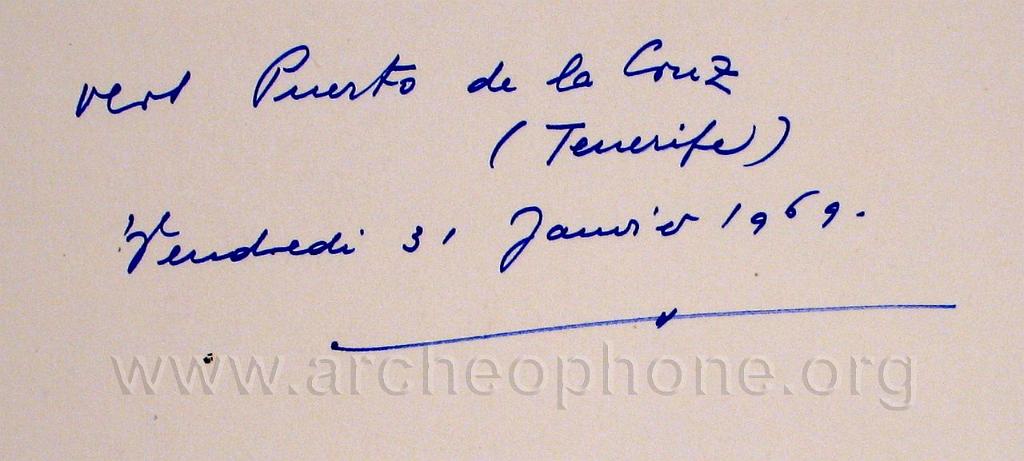 vers Puerto de la Cruz
(Tenerife)
Vendredi 31 Janvier 1969.
www.archeophone.org